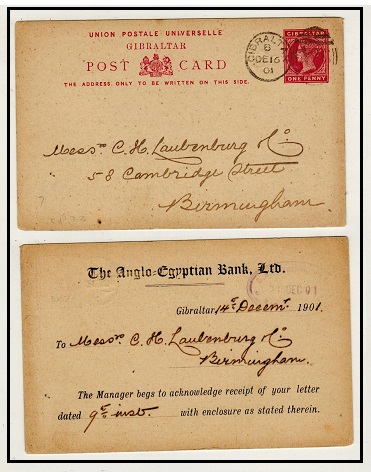 UNION POSTALE UNIVERSELLE
GIBRALTAR
POST CARD
THE ADDRESS ONLY TO BE WRITTEN ON THIS SIDE.
GIBRALTAR
B
DE 16
01
GIBRALTAR
ONE PENNY
Messrs C. H. Laubenburg & Co.
58 Cambridge Street
Birmingham.
The Anglo-Egyptian Bank, Ltd.
DEC 01
Gibraltar, 14th Decemr. 1901.
To Messrs C. H. Laubenburg & Co.
Birmingham.
The Manager begs to acknowledge receipt of your letter
dated 9th inst. with enclosure as stated therein.